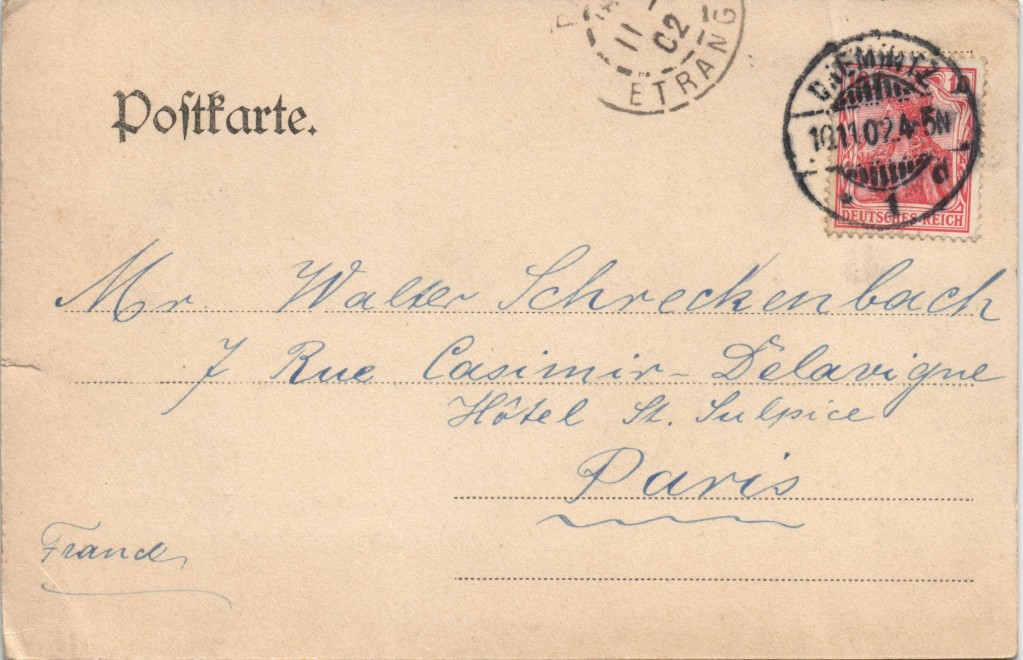 11 02
ETRANG
Postkarte.
CHEMNITZ
10.11.02.4-5N
* 1 d
10
DEUTSCHES REICH
Mr. Walter Schreckenbach
7 Rue Casimir-Delavigne
Hôtel St. Sulpice
Paris
France